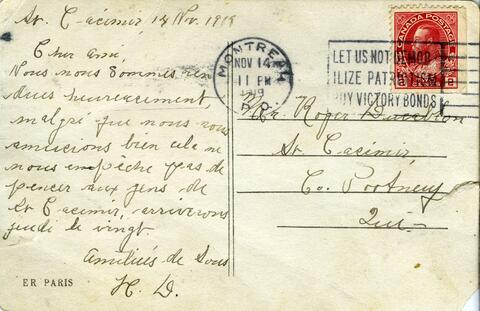 St. Casimir 14 Nov. 1919
Cher ami.
Nous nous sommes ren
dues heureusement
malgré que nous nous
amusions bien cela ne
nous empêche pas de
pencer aux gens de
St Casimir, arriverons
jeudi le vingt.
Amitiés de Tous
H. D.
ER PARIS
MONTREAL
NOV 14
11 PM
P.Q.
LET US NOT DEMOB
ILIZE PATRIOTISM
BUY VICTORY BONDS
CANADA POSTAGE
Mr. Roger
St Casimir
Co. Portneuf
Que